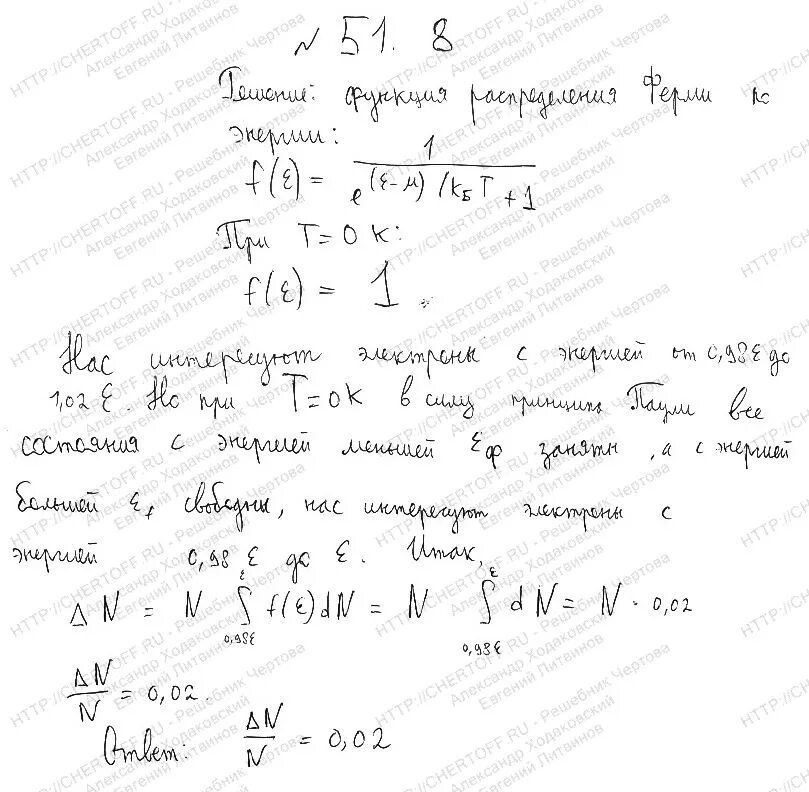 № 51. 8
Решение: функция распределения Ферми по
энергии:
f(ε) = 1 / (e^((ε-μ)/k_Б T) + 1)
При T=0 K:
f(ε) = 1.
Нас интересуют электроны с энергией от 0,98ε до
1,02 ε. Но при T=0K в силу принципа Паули все
состояния с энергией меньшей ε_ф заняты, а с энергией
большей ε_f свободны, нас интересуют электроны с
энергией 0,98 ε до ε. Итак,
Δ N = N ∫_{0,98ε}^{ε} f(ε)dN = N ∫_{0,98ε}^{ε} dN = N · 0,02
ΔN/N = 0,02.
Ответ: ΔN/N = 0,02
HTTP://CHERTOFF.RU - Решебник Чертова
Александр Ходаковский
Евгений Литвинов